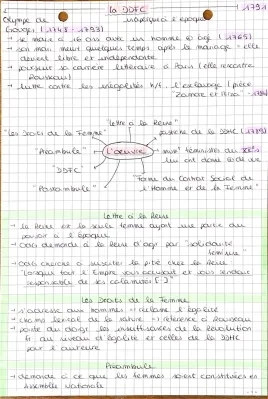 La DDFC
1791
Olympe de
Gouges (1748 - 1793)
→ se marie à 16 ans avec un homme + âgé (1765)
→ son mari meurt quelques temps après le mariage → elle
devient libre et indépendante
→ poursuit sa carrière littéraire à Paris (elle rencontre
Rousseau)
→ lutte contre les inégalités h/f, l'esclavage (pièce
"Zamore et Mirza" - 1784)
"Lettre à la Reine"
"Les Droits de la Femme"
pastiche de la DDHC (1789)
"Préambule"
L'oeuvre
"DDFC"
"Postambule"
"Forme du Contrat Social de
l'Homme et de la Femme"
Lettre à la Reine
→ la Reine est la seule femme ayant une partie du
pouvoir à l'époque
→ ODG demande à la Reine d'agir par "solidarité
féminine"
→ ODG cherche à susciter la pitié chez la Reine
"Lorsque tout l'Empire vous accusait et vous rendait
responsable de ses calamités [...]"
Les Droits de la Femme
→ s'adresse aux hommes → réclame l'égalité
→ champ lexical de la nature → référence à Rousseau
→ pointe du doigt les insuffisances de la Révolution
fr au niveau d'égalité et celles de la DDHC
Préambule
→ demande à ce que les femmes soient constituées en
Assemblée Nationale